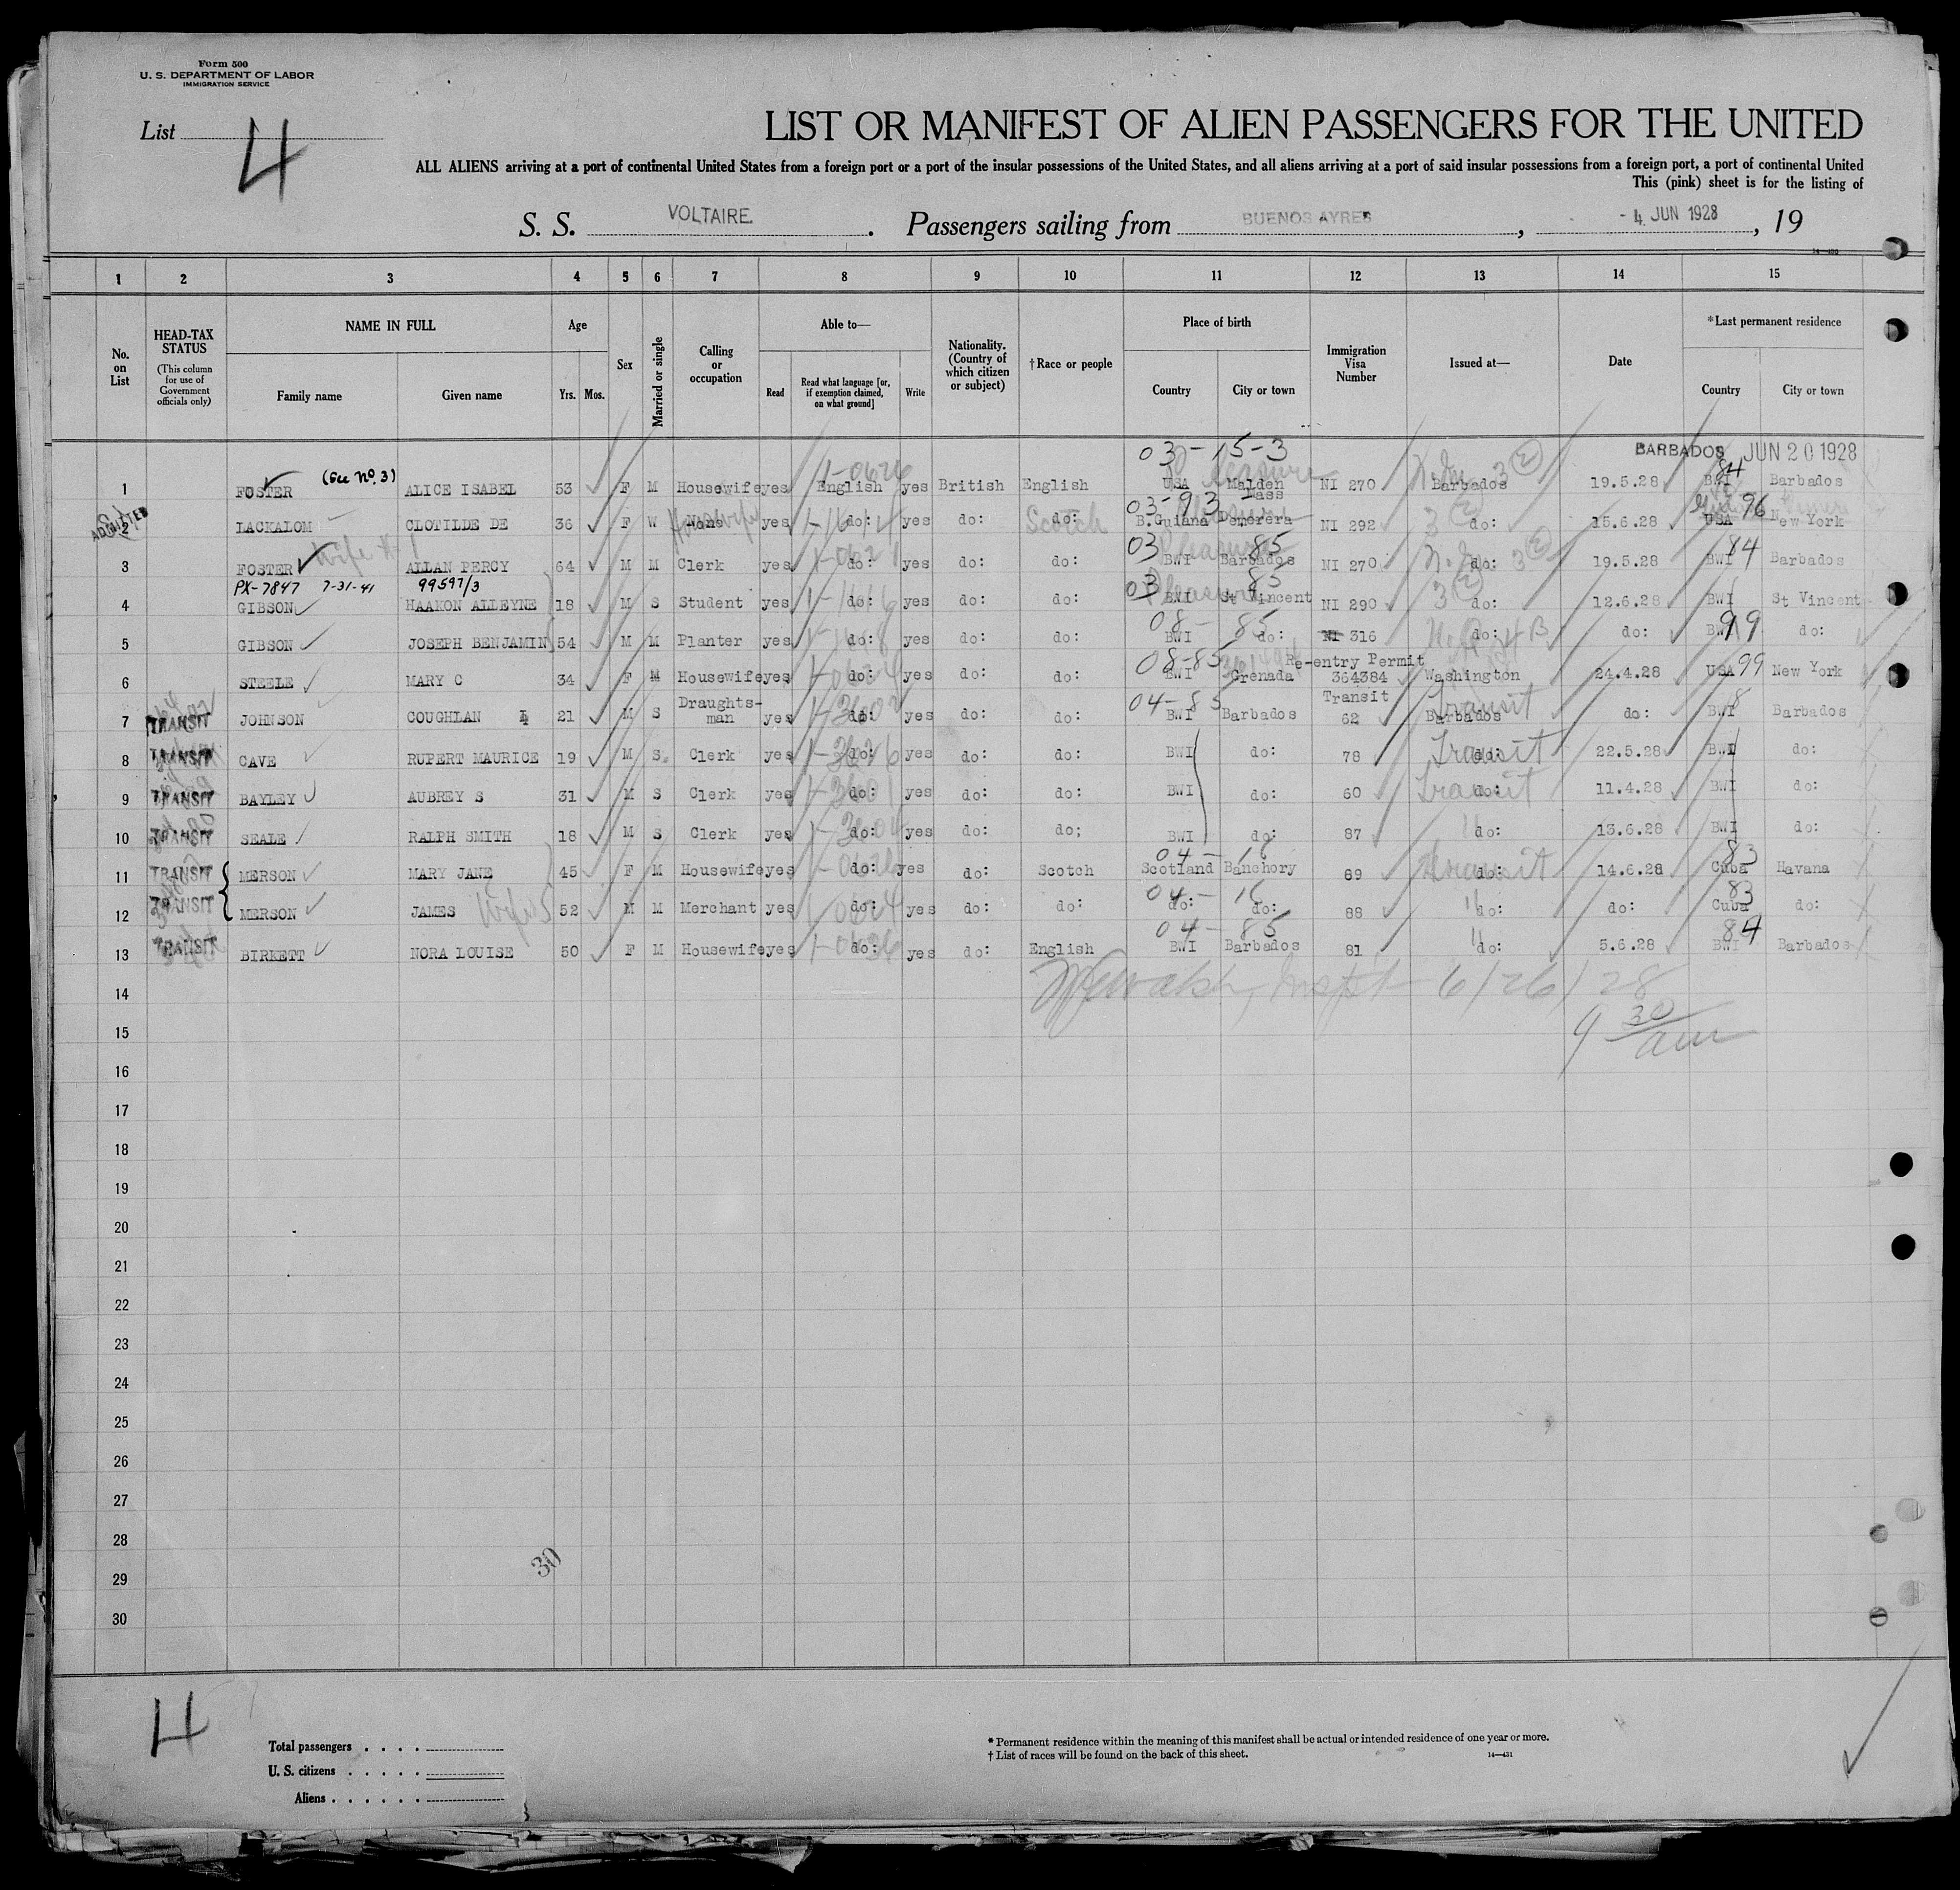 Form 500
U. S. DEPARTMENT OF LABOR
IMMIGRATION SERVICE
List 4
LIST OR MANIFEST OF ALIEN PASSENGERS FOR THE UNITED
ALL ALIENS arriving at a port of continental United States from a foreign port or a port of the insular possessions of the United States, and all aliens arriving at a port of said insular possessions from a foreign port, a port of continental United
This (pink) sheet is for the listing of
S. S. VOLTAIRE. Passengers sailing from BUENOS AYRES, - 4 JUN 1928, 19
1 2 3 4 5 6 7 8 9 10 11 12 13 14 15
No. on List
HEAD-TAX STATUS
(This column for use of Government officials only)
NAME IN FULL
Family name
Given name
Age
Yrs.
Mos.
Sex
Married or single
Calling or occupation
Able to—
Read
Read what language [or, if exemption claimed, on what ground]
Write
Nationality. (Country of which citizen or subject)
† Race or people
Place of birth
Country
City or town
Immigration Visa Number
Issued at—
Date
* Last permanent residence
Country
City or town
03-15-3 BARBADOS JUN 20 1928
(See No. 3)
1 FOSTER ALICE ISABEL 53 F M Housewife yes English yes British English USA Malden Mass NI 270 Barbados 19.5.28 BWI Barbados
84
03-93
2 ADMITTED LACKALOM CLOTILDE DE 36 F W None Housewife yes do: yes do: do: Scotch B.Guiana Demerera NI 292 do: 15.6.28 USA New York
96
03 85
3 FOSTER Wife #1 ALLAN PERCY 64 M M Clerk yes do: yes do: do: BWI Barbados NI 270 do: 19.5.28 BWI Barbados
84
PX-7847 7-31-41 99597/3
03 85
4 GIBSON HAAKON ALLEYNE 18 M S Student yes do: yes do: do: BWI St Vincent NI 290 do: 12.6.28 BWI St Vincent
08- 85
5 GIBSON JOSEPH BENJAMIN 54 M M Planter yes do: yes do: do: BWI do: NI 316 do: do: BWI do:
99
08-85 Re-entry Permit
6 STEELE MARY C 34 F M Housewife yes do: yes do: do: BWI Grenada 364384 Washington 24.4.28 USA New York
99
04-85 Transit
7 TRANSIT JOHNSON COUGHLAN L 21 M S Draughts-man yes do: yes do: do: BWI Barbados 62 Barbados Transit do: BWI Barbados
8 TRANSIT CAVE RUPERT MAURICE 19 M S. Clerk yes do: yes do: do: BWI do: 78 do: Transit 22.5.28 BWI do:
9 TRANSIT BAYLEY AUBREY S 31 M S Clerk yes do: yes do: do: BWI do: 60 do: Transit 11.4.28 BWI do:
10 TRANSIT SEALE RALPH SMITH 18 M S Clerk yes do: yes do: do; BWI do: 87 do: 13.6.28 BWI do:
04- 16 83
11 TRANSIT MERSON MARY JANE 45 F M Housewife yes do: yes do: Scotch Scotland Banchory 89 do: Transit 14.6.28 Cuba Havana
04- 16 83
12 TRANSIT MERSON JAMES Wife 52 M M Merchant yes do: yes do: do: do: do: 88 do: do: Cuba do:
04- 85 84
13 TRANSIT BIRKETT NORA LOUISE 50 F M Housewife yes do: yes do: English BWI Barbados 81 do: 5.6.28 BWI Barbados
14 Walsh, Inspt 6/26/28
15 9 30 am
16
17
18
19
20
21
22
23
24
25
26
27
28
29
30
30
4
Total passengers
U. S. citizens
Aliens
* Permanent residence within the meaning of this manifest shall be actual or intended residence of one year or more.
† List of races will be found on the back of this sheet.
14—431